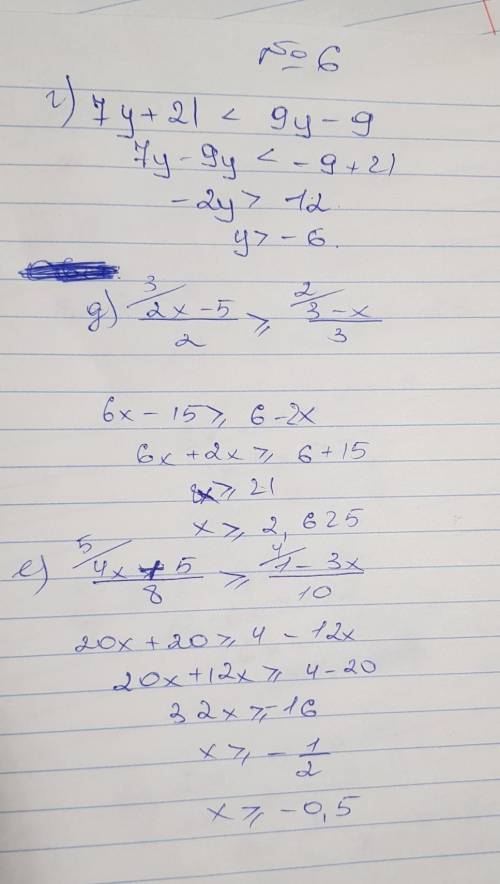 № 6
г) 7y + 21 < 9y - 9
7y - 9y < - 9 + 21
- 2y > 12
y > - 6.
д) 3/ (2x - 5)/2 ⩾ 2/ (3 - x)/3
6x - 15 ⩾ 6 - 2x
6x + 2x ⩾ 6 + 15
8x ⩾ 21
x ⩾ 2,625
е) 5/ (4x + 5)/8 ⩾ 4/ (1 - 3x)/10
20x + 20 ⩾ 4 - 12x
20x + 12x ⩾ 4 - 20
32x ⩾ -16
x ⩾ - 1/2
x ⩾ - 0,5